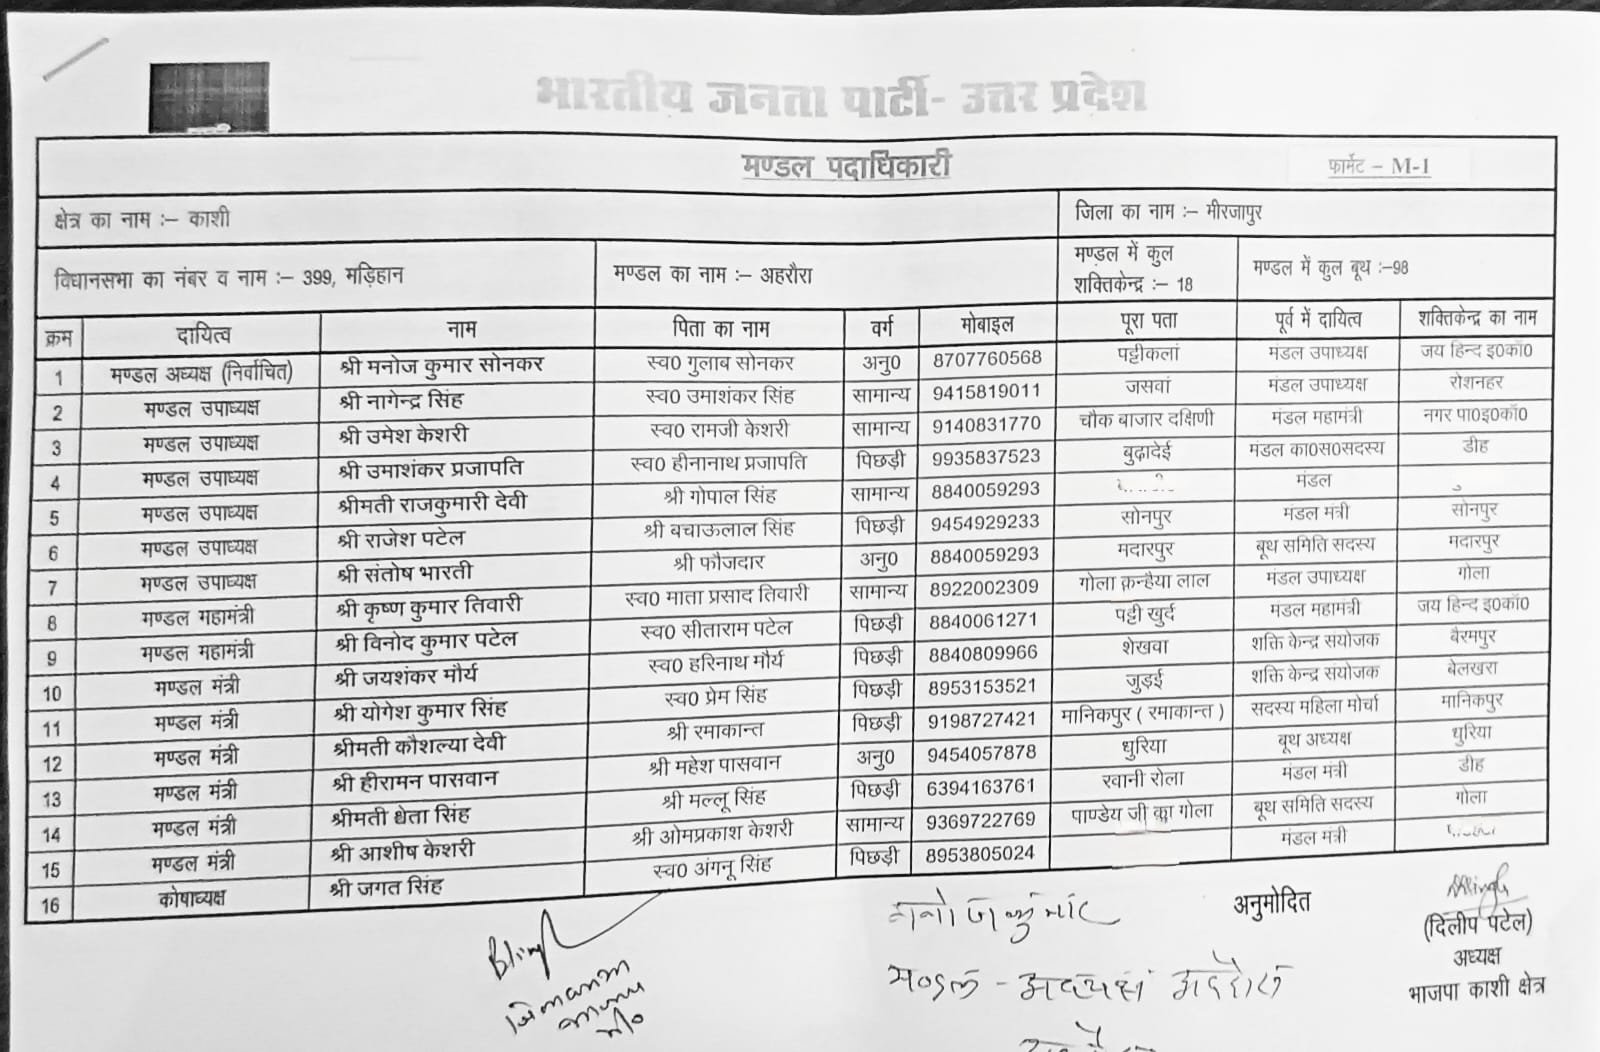 भारतीय जनता पार्टी- उत्तर प्रदेश
मण्डल पदाधिकारी फार्मेट – M-1
क्षेत्र का नाम :– काशी जिला का नाम :– मीरजापुर
विधानसभा का नंबर व नाम :– 399, मड़िहान मण्डल का नाम :– अहरौरा मण्डल में कुल शक्तिकेन्द्र :– 18 मण्डल में कुल बूथ :–98
क्रम दायित्व नाम पिता का नाम वर्ग मोबाइल पूरा पता पूर्व में दायित्व शक्तिकेन्द्र का नाम
1 मण्डल अध्यक्ष (निर्वाचित) श्री मनोज कुमार सोनकर स्व0 गुलाब सोनकर अनु0 8707760568 पट्टीकलां मंडल उपाध्यक्ष जय हिन्द इ0कॉ0
2 मण्डल उपाध्यक्ष श्री नागेन्द्र सिंह स्व0 उमाशंकर सिंह सामान्य 9415819011 जसवां मंडल उपाध्यक्ष रोशनहर
3 मण्डल उपाध्यक्ष श्री उमेश केशरी स्व0 रामजी केशरी सामान्य 9140831770 चौक बाजार दक्षिणी मंडल महामंत्री नगर पा0इ0कॉ0
4 मण्डल उपाध्यक्ष श्री उमाशंकर प्रजापति स्व0 हीनानाथ प्रजापति पिछड़ी 9935837523 बुढ़ादेई मंडल का0स0सदस्य डीह
5 मण्डल उपाध्यक्ष श्रीमती राजकुमारी देवी श्री गोपाल सिंह सामान्य 8840059293 मंडल
6 मण्डल उपाध्यक्ष श्री राजेश पटेल श्री बचाऊलाल सिंह पिछड़ी 9454929233 सोनपुर मंडल मंत्री सोनपुर
7 मण्डल उपाध्यक्ष श्री संतोष भारती श्री फौजदार अनु0 8840059293 मदारपुर बूथ समिति सदस्य मदारपुर
8 मण्डल महामंत्री श्री कृष्ण कुमार तिवारी स्व0 माता प्रसाद तिवारी सामान्य 8922002309 गोला कन्हैया लाल मंडल उपाध्यक्ष गोला
9 मण्डल महामंत्री श्री विनोद कुमार पटेल स्व0 सीताराम पटेल पिछड़ी 8840061271 पट्टी खुर्द मंडल महामंत्री जय हिन्द इ0कॉ0
10 मण्डल मंत्री श्री जयशंकर मौर्य स्व0 हरिनाथ मौर्य पिछड़ी 8840809966 शेखवा शक्ति केन्द्र संयोजक बैरमपुर
11 मण्डल मंत्री श्री योगेश कुमार सिंह स्व0 प्रेम सिंह पिछड़ी 8953153521 जुड़ई शक्ति केन्द्र संयोजक बेलखरा
12 मण्डल मंत्री श्रीमती कौशल्या देवी श्री रमाकान्त पिछड़ी 9198727421 मानिकपुर ( रमाकान्त ) सदस्य महिला मोर्चा मानिकपुर
13 मण्डल मंत्री श्री हीरामन पासवान श्री महेश पासवान अनु0 9454057878 धुरिया बूथ अध्यक्ष धुरिया
14 मण्डल मंत्री श्रीमती श्वेता सिंह श्री मल्लू सिंह पिछड़ी 6394163761 रवानी रोला मंडल मंत्री डीह
15 मण्डल मंत्री श्री आशीष केशरी श्री ओमप्रकाश केशरी सामान्य 9369722769 पाण्डेय जी का गोला बूथ समिति सदस्य गोला
16 कोषाध्यक्ष श्री जगत सिंह स्व0 अंगनू सिंह पिछड़ी 8953805024 मंडल मंत्री
अनुमोदित
मनोज कुमार
(दिलीप पटेल)
अध्यक्ष
मण्डल - अध्यक्ष
भाजपा काशी क्षेत्र